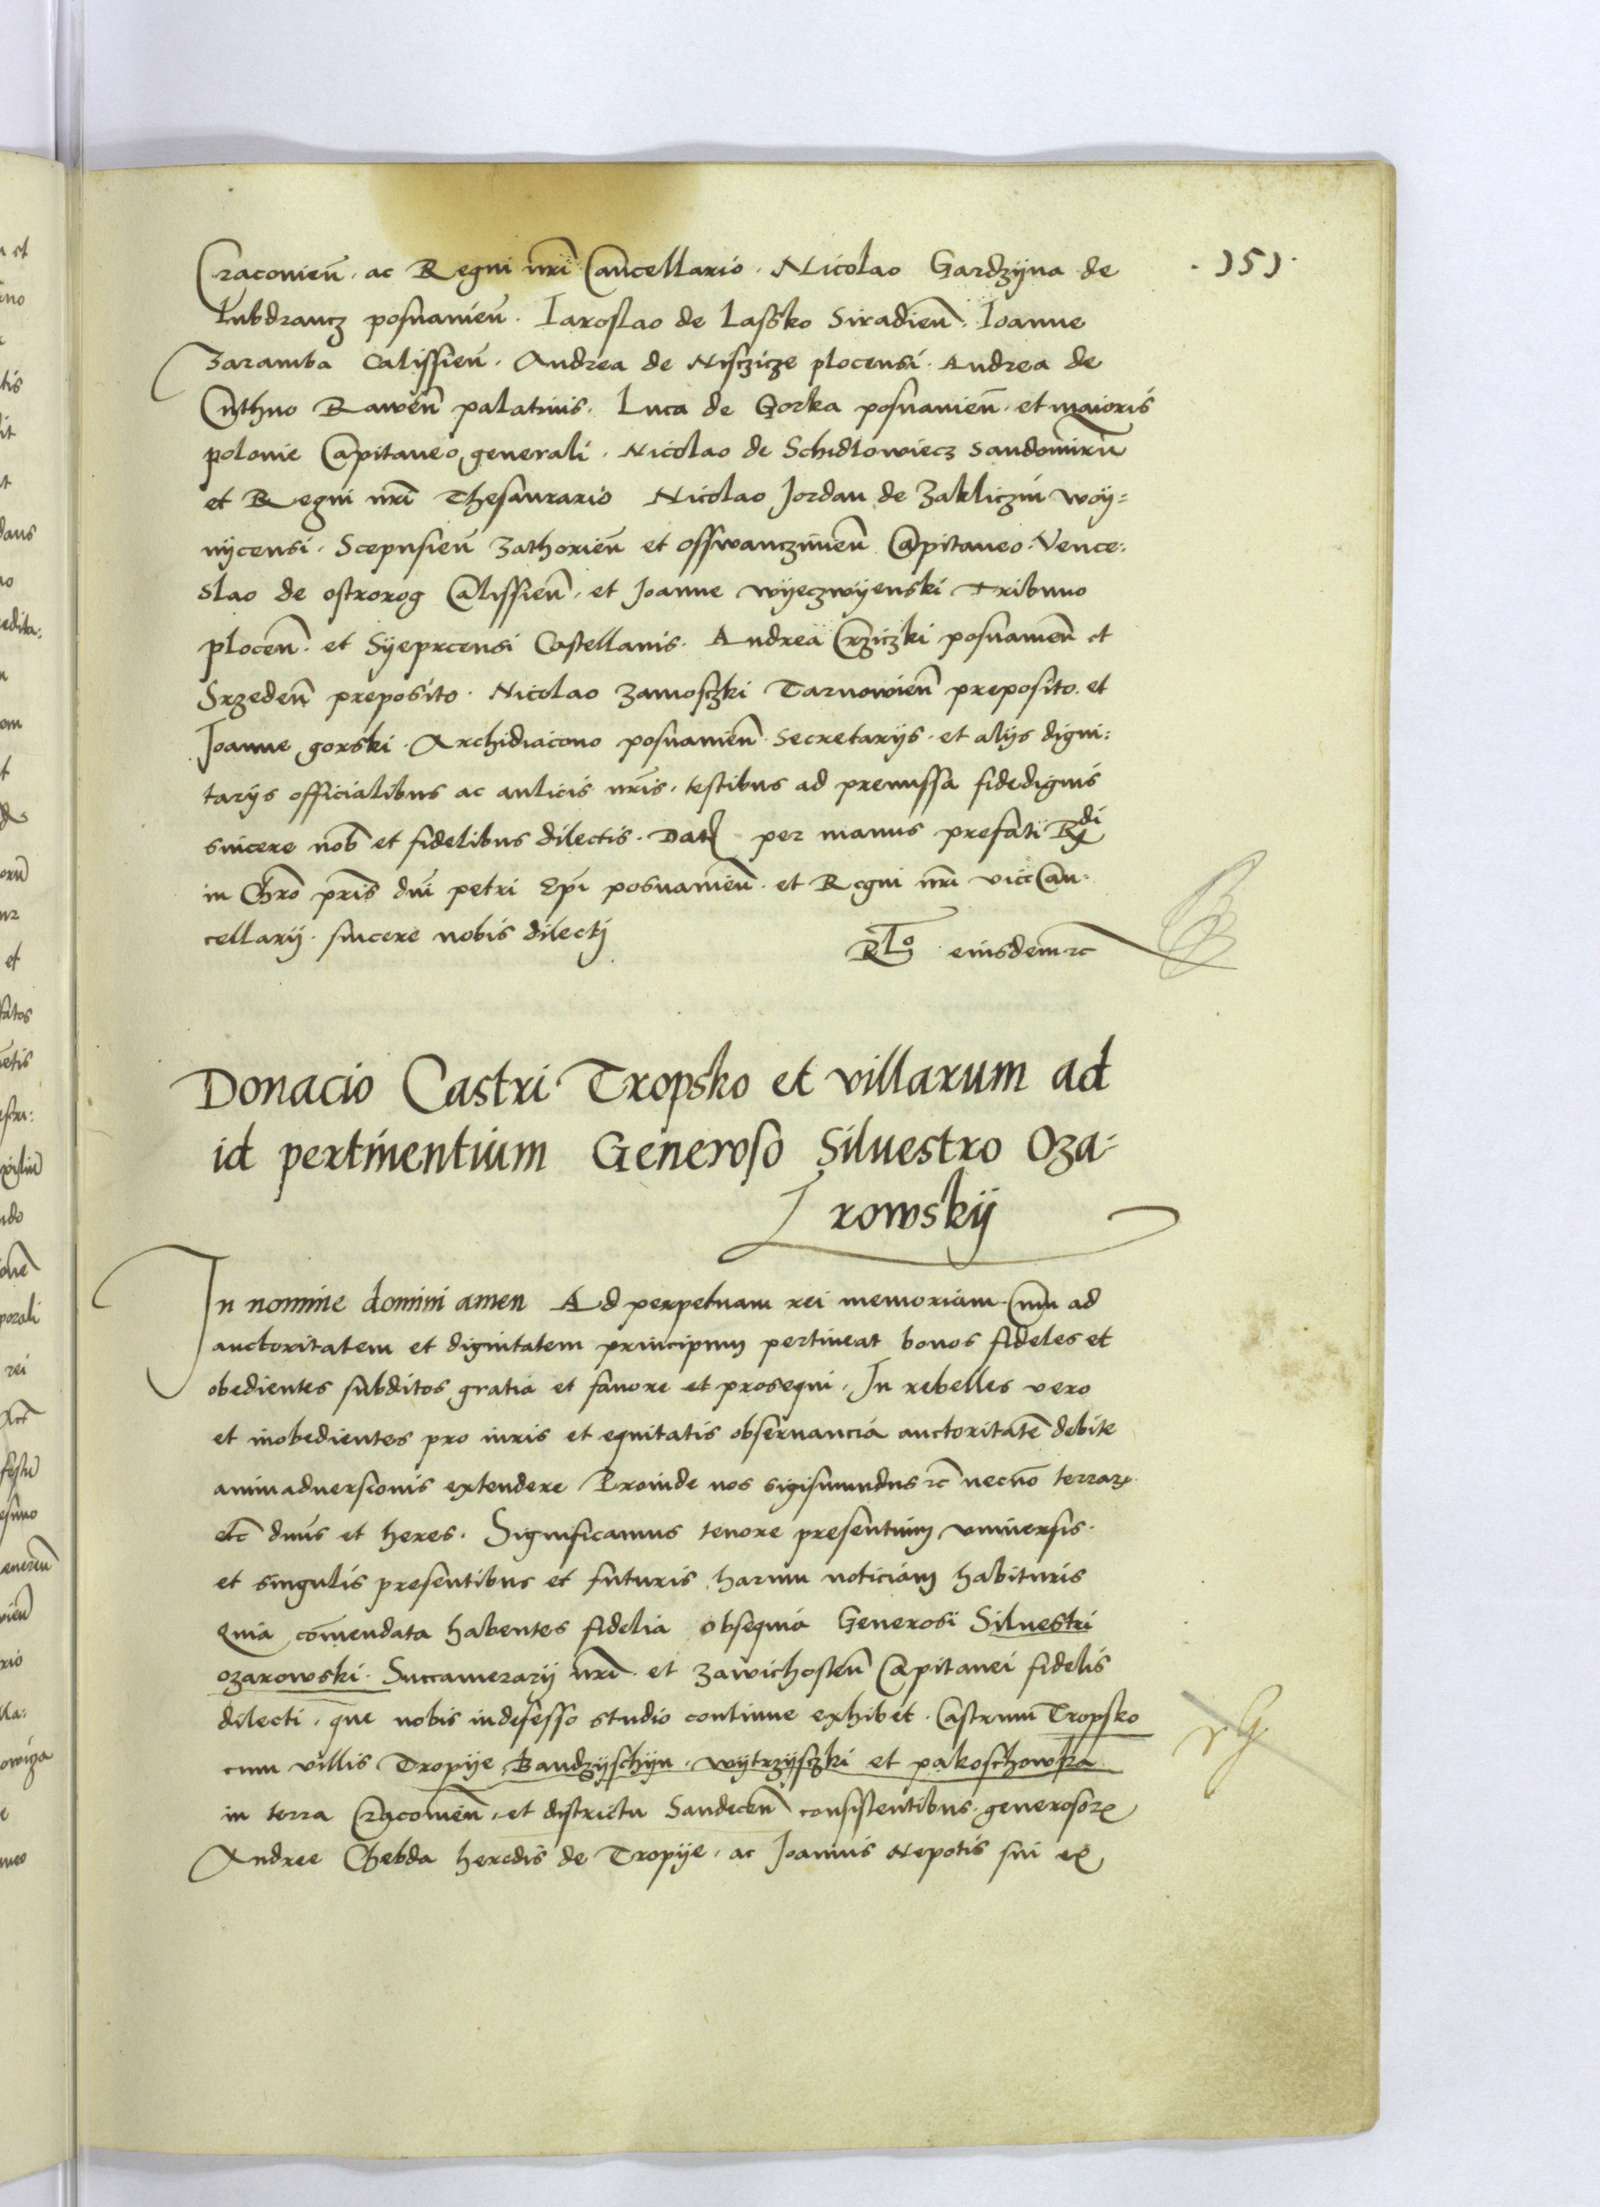 Craconien̄. ac Regni nr̄i Cancellario. Nicolao Gardzÿna de
Lubdrancz posnanien̄. Iaroslao de Lassko Siradien̄. Ioanne
Zaramba Calissien̄. Andrea de Nisczicze plocensi. Andrea de
Cuthno Rawen̄ palatinis. Luca de Gorka posnanien̄. et maioris
polonie Capitaneo generali. Nicolao de Schidlowiecz Sandomirn̄
et Regni nr̄i Thesaurario Nicolao Jordan de Zakliczin woÿ=
nÿcensi. Scepusien̄ Zathorien̄ et osswanczimen̄ Capitaneo. Vence:
slao de ostrorog Calissien̄. et Joanne wÿeczwÿenski Tribuno
plocen̄. et Sÿeprcensi Castellanis. Andrea Crziczki posnanien̄ et
Srzeden̄ preposito. Nicolao Zamosczki Tarnowien̄ preposito. et
Joanne gorski Archidiacono posnanien̄ Secretarÿs. et alÿs digni:
tarÿs officialibus ac aulicis nr̄is. testibus ad premissa fidedignis
sincere nob̄ et fidelibus dilectis. Dat̄ per manus prefati R^di
in Chr̄o pr̄is dn̄i petri Ep̄i posnanien̄. et Regni nr̄i viceCan:
cellarÿ. sincere nobis dilecti
R^lo eiusdem ꝛc̄
. 151.
Donacio Castri Tropsko et villarum ad
id pertinentium Generoso Siluestro Oza=
rowskÿ
In nomine domini amen Ad perpetuam rei memoriam. Cum ad
auctoritatem et dignitatem principum pertineat bonos fideles et
obedientes subditos gratia et fauore et prosequi. In rebelles vero
et inobedientes pro iuris et equitatis obseruancia auctoritatē debite
animaduersionis extendere Proinde nos sigismundus ꝛc̄ necnō terraꝝ
etc̄ dn̄s et heres. Significamus tenore presentium vniuersis.
et singulis presentibus et futuris harum noticiam habituris
Quia com̄endata habentes fidelia obsequia Generosi Siluestri
ozarowski. Succamerarÿ nr̄i. et Zawichosten̄ Capitanei fidelis
dilecti. que nobis indefesso studio continue exhibet. Castrum Tropsko
cum villis Tropÿe Bandzÿschÿn. wÿtrzÿsczki et pakoschowka
in terra Cracovien̄. et districtu Sandecen̄ consistentibus. generosoꝝ
Andree Chebda heredis de Tropÿe. ac Joannis Nepotis sui ex